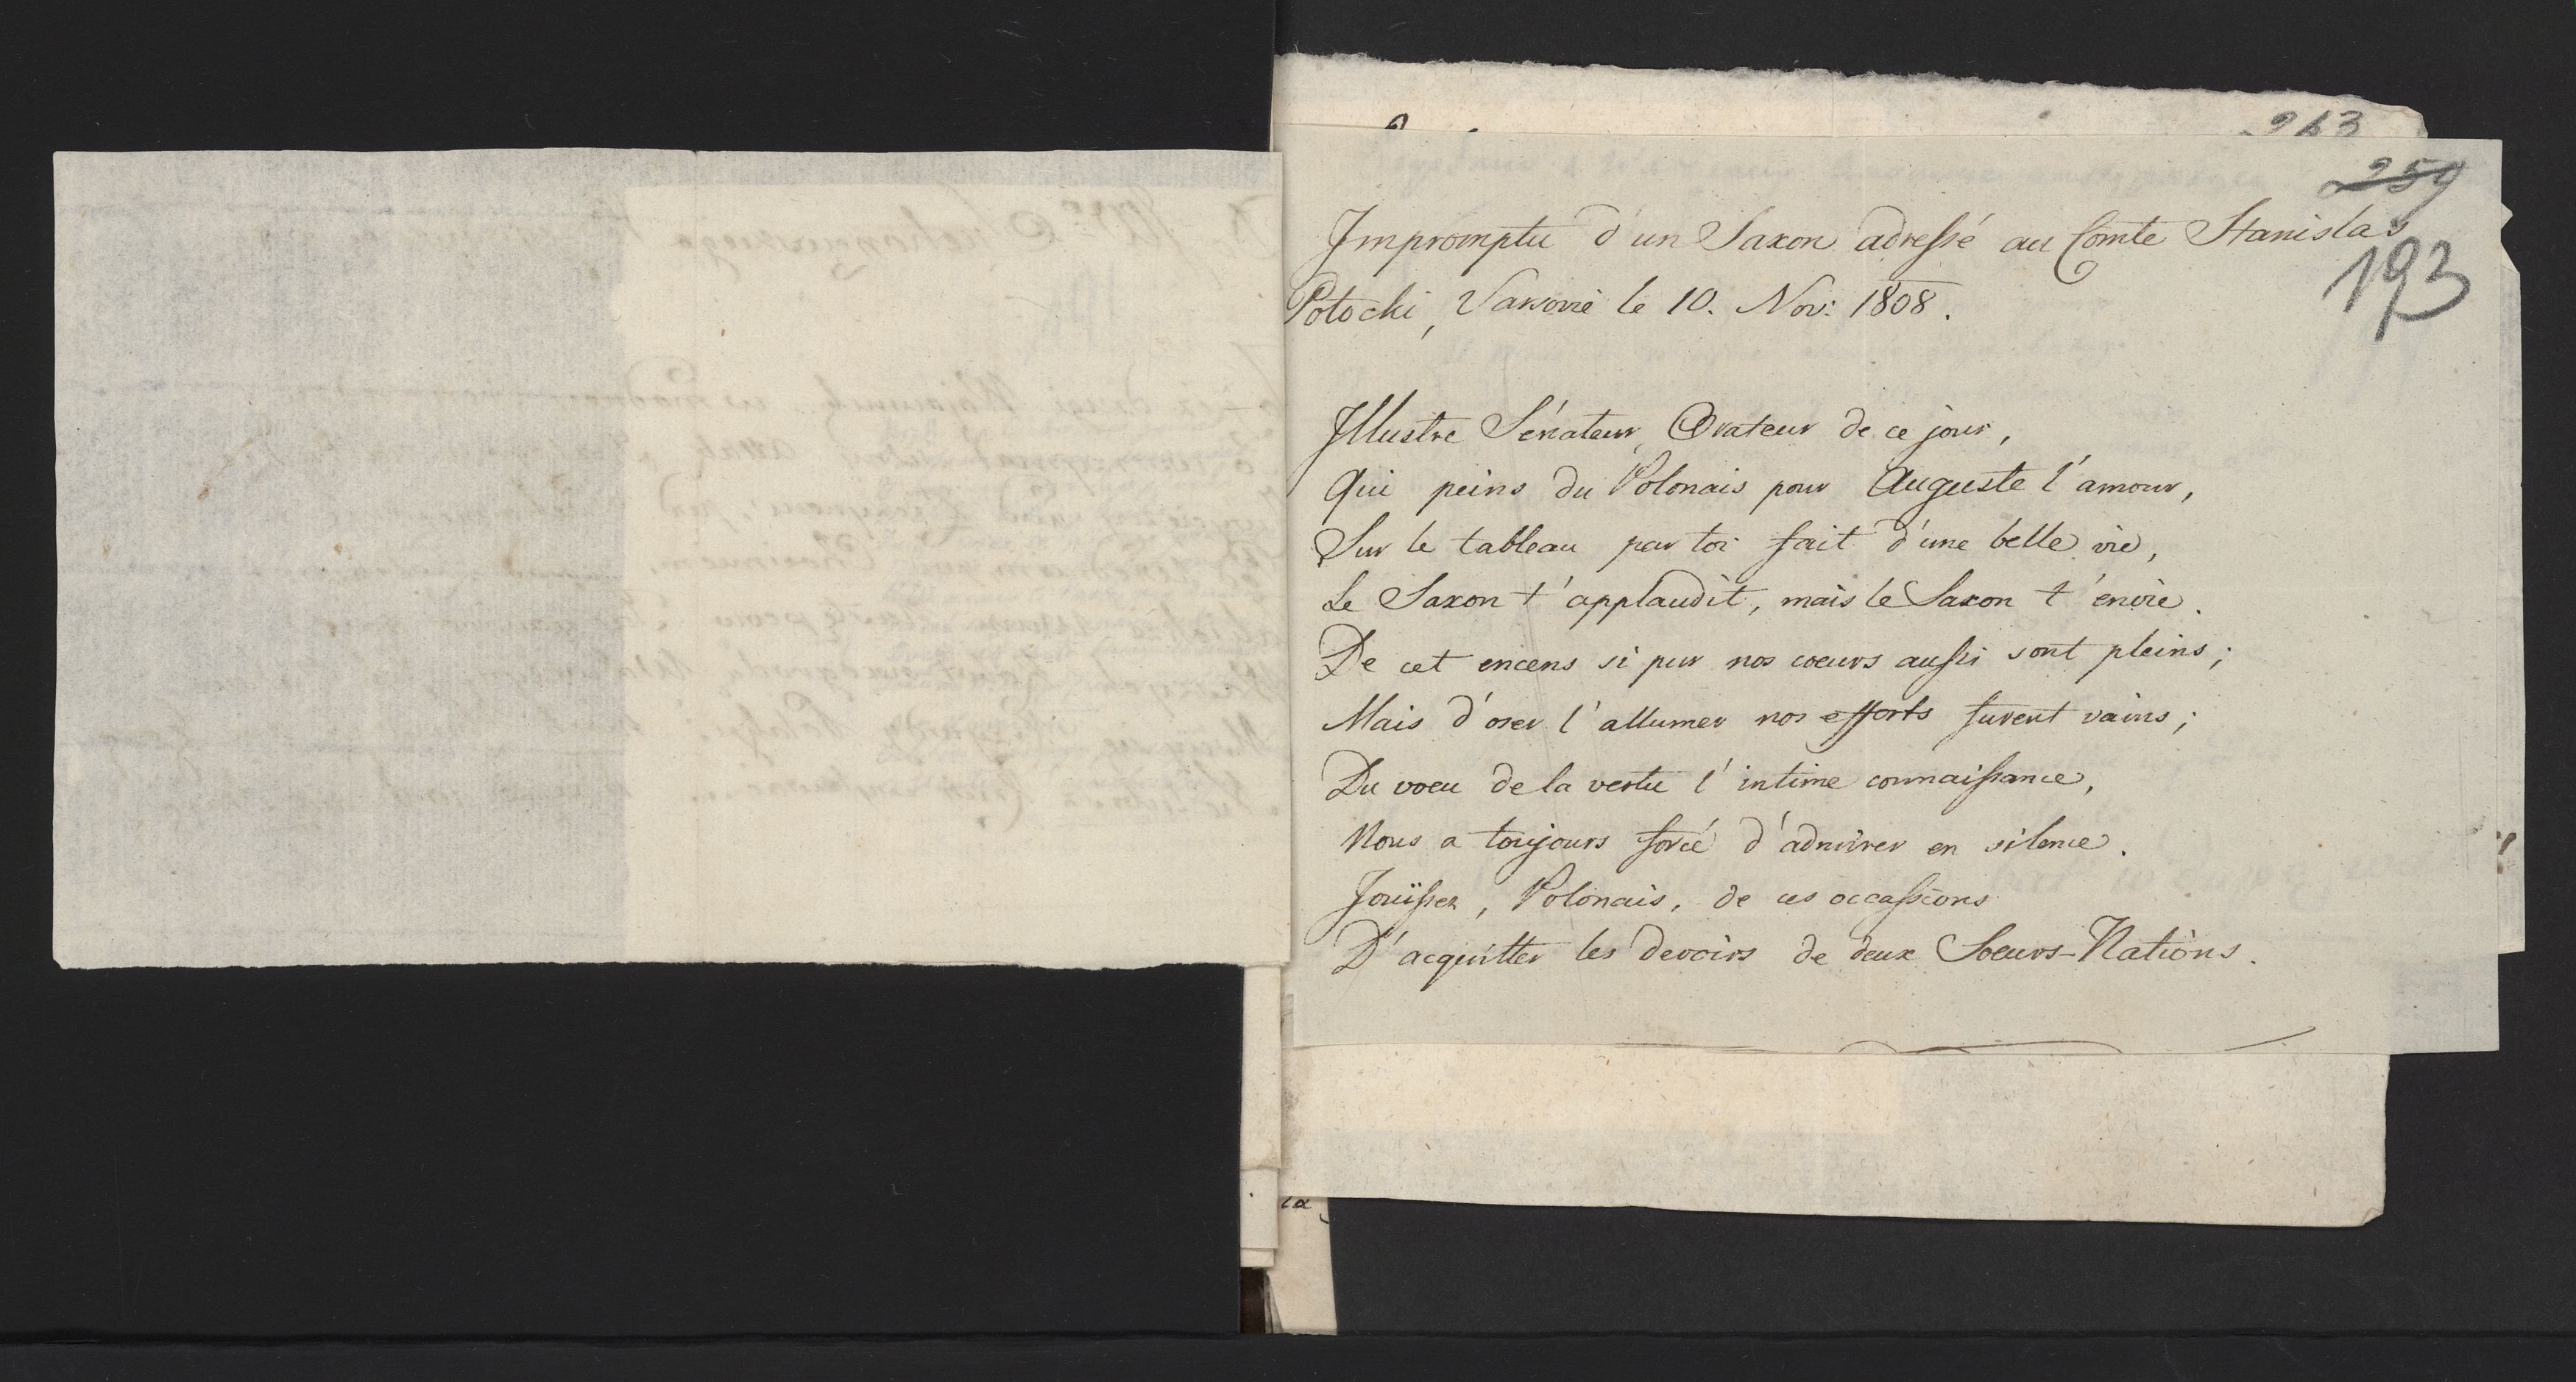 263
259
193
Impromptu d'un Saxon adreſsé au Comte Stanislas
Potocki, Varsovie le 10. Nov: 1808.
Illustre Sénateur, Orateur de ce jour,
Qui peins du Polonais pour Auguste l'amour,
Sur le tableau par toi fait d'une belle vie,
Le Saxon t'applaudit, mais le Saxon t'envie.
De cet encens si pur nos coeurs auſsi sont pleins;
Mais d'oser l'allumer nos efforts furent vains;
Du voeu de la vertu l'intime connaiſsance,
Nous a toujours forcé d'admirer en silence.
Jouïſsez, Polonais, de ces occaſsions
D'acquitter les devoirs de deux Soeurs-Nations.